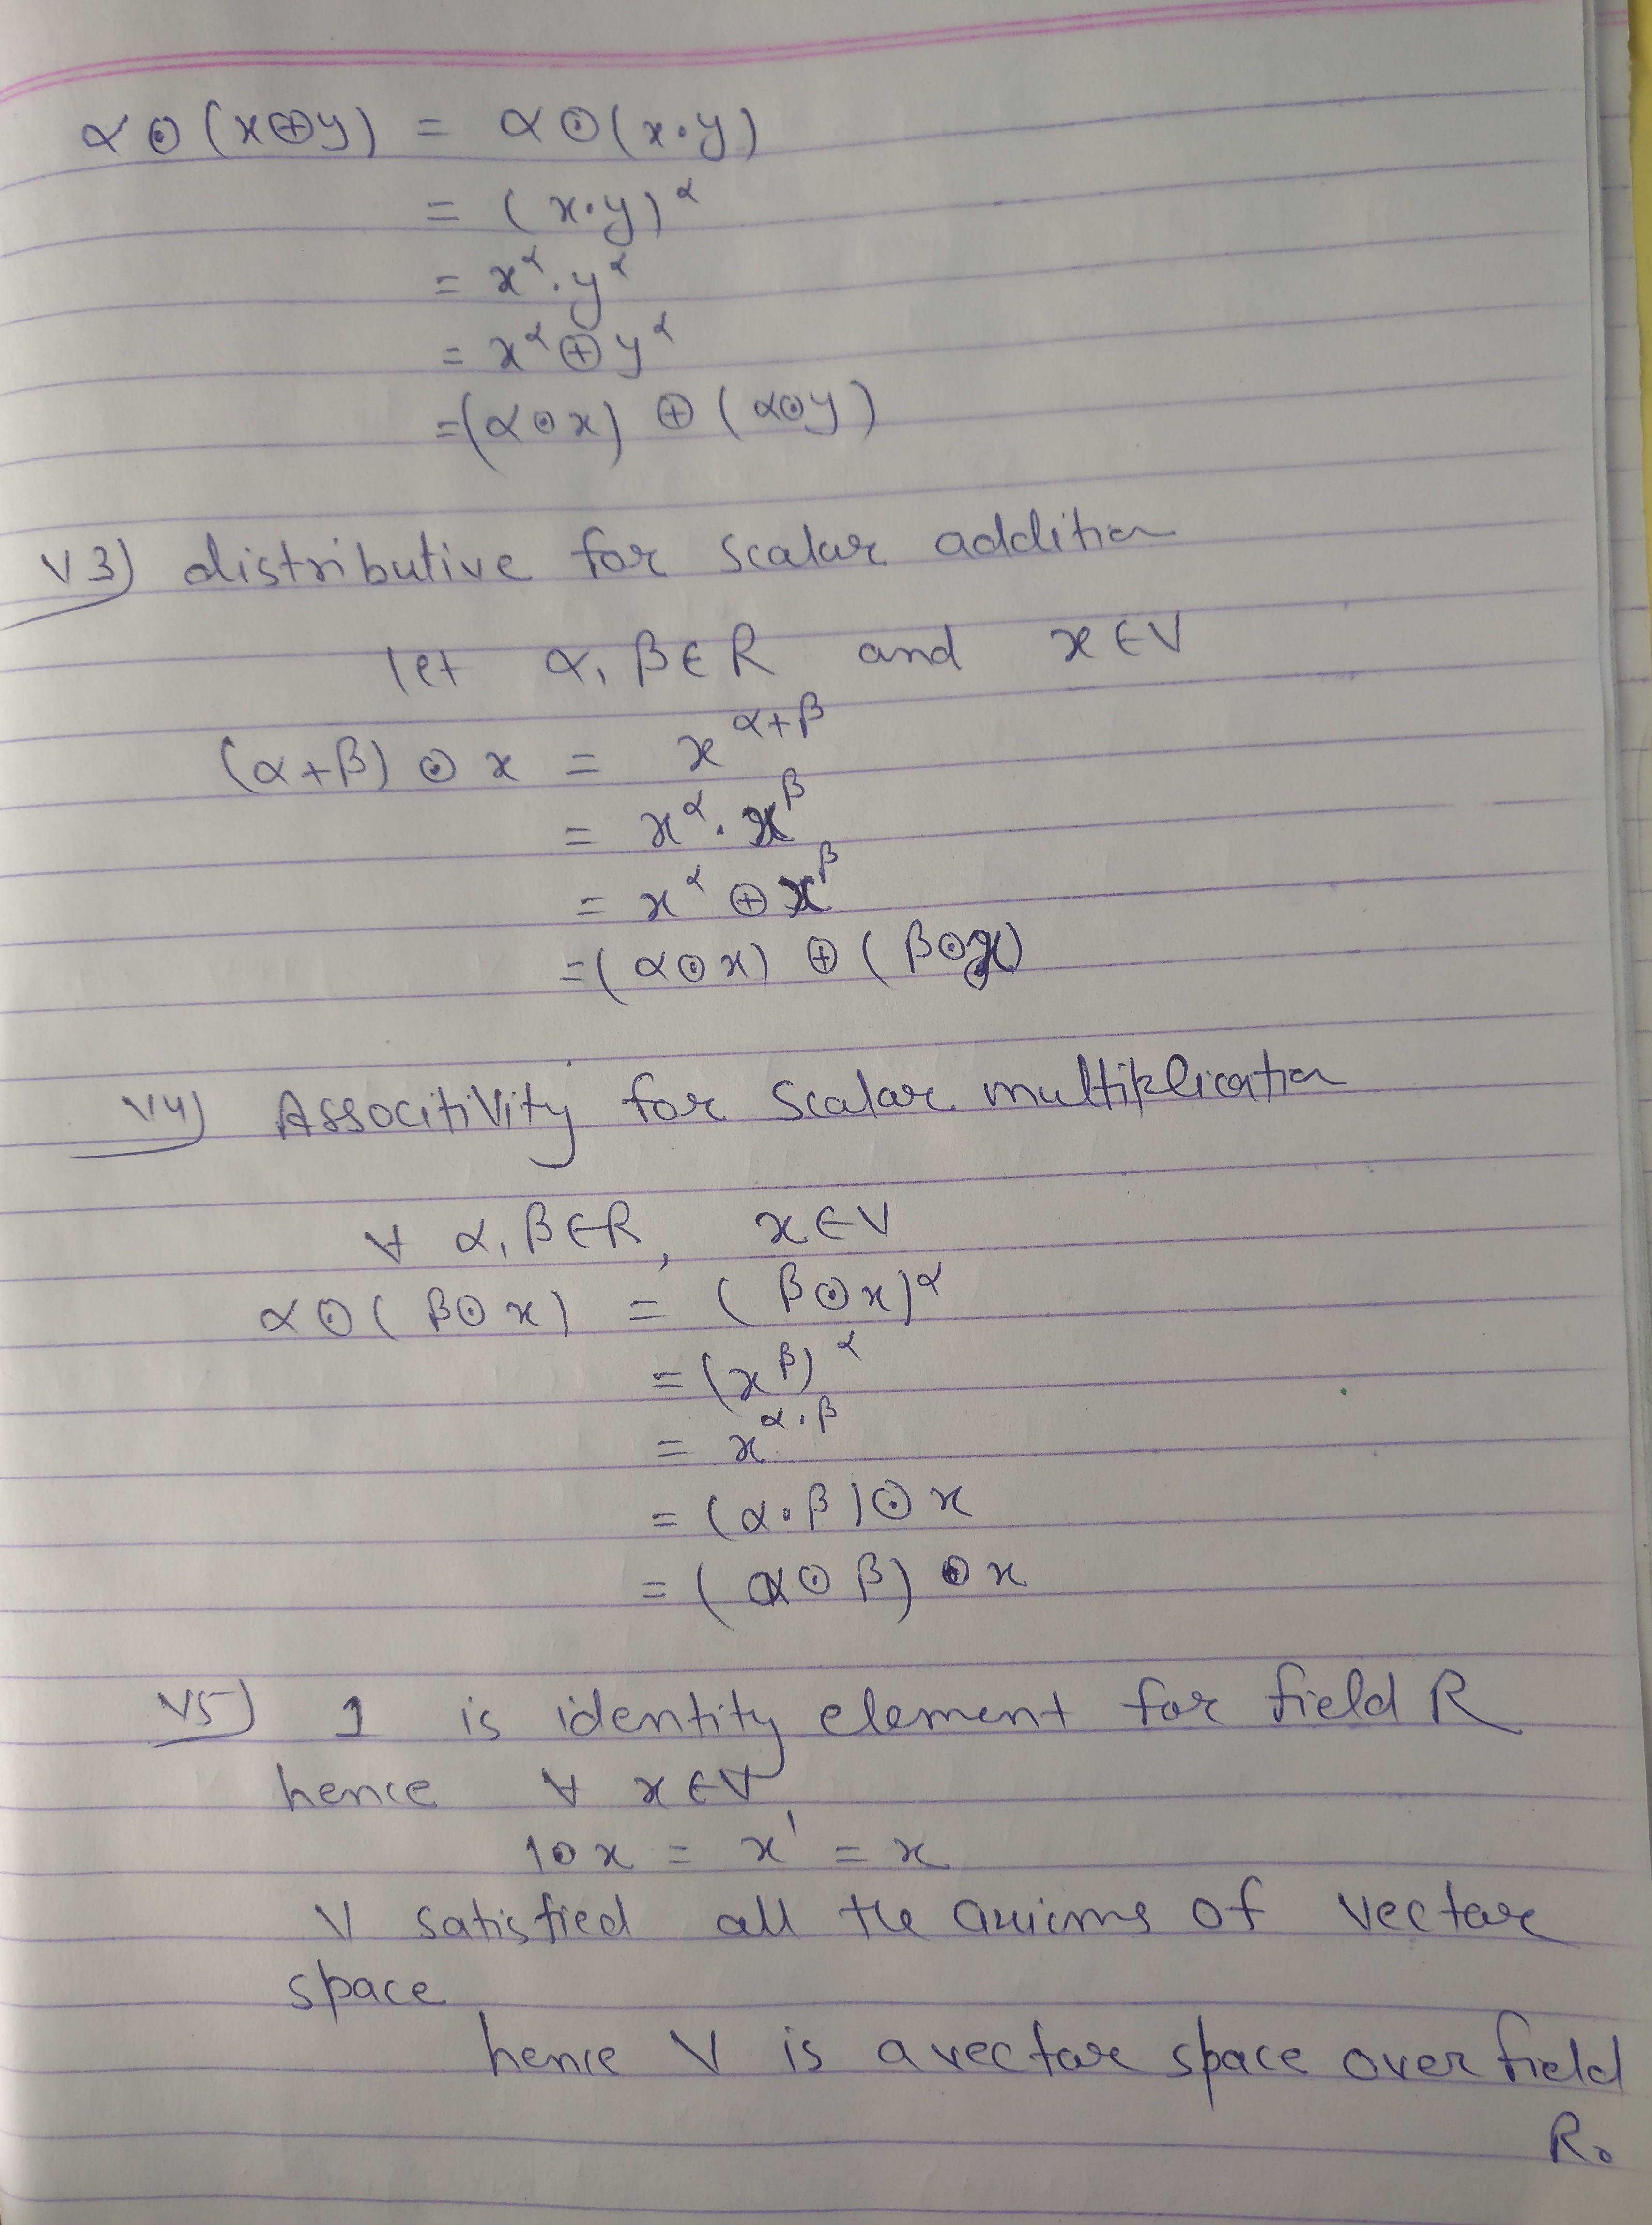 α⊙(x⊕y) = α⊙(x·y)
= (x·y)^α
= x^α·y^α
= x^α⊕y^α
=(α⊙x) ⊕ (α⊙y)
V3) distributive for scalar addition
let α, β∈R and x∈V
(α+β)⊙x = x^(α+β)
= x^α·x^β
= x^α⊕x^β
=(α⊙x) ⊕ (β⊙x)
V4) Associtivity for scalar multiplication
∀ α, β∈R, x∈V
α⊙(β⊙x) = (β⊙x)^α
= (x^β)^α
= x^(α·β)
= (α·β)⊙x
= (α⊙β)⊙x
V5) 1 is identity element for field R
hence ∀ x∈V
1⊙x = x^1 = x
V satisfied all the axioms of vector
space
hence V is a vector space over field
R.